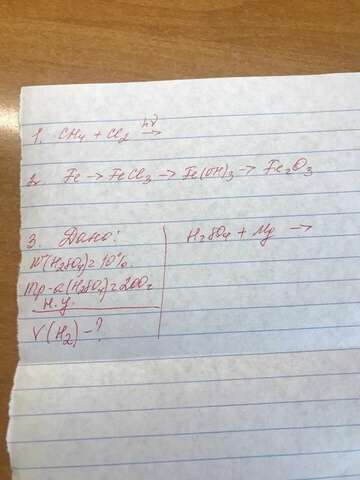 1. CH₄ + Cl₂ hν→
2. Fe → FeCl₃ → Fe(OH)₃ → Fe₂O₃
3. Дано:
W(H₂SO₄)=10%
mр-а(H₂SO₄)=200г
н.у.
V(H₂)-?
H₂SO₄ + Mg →